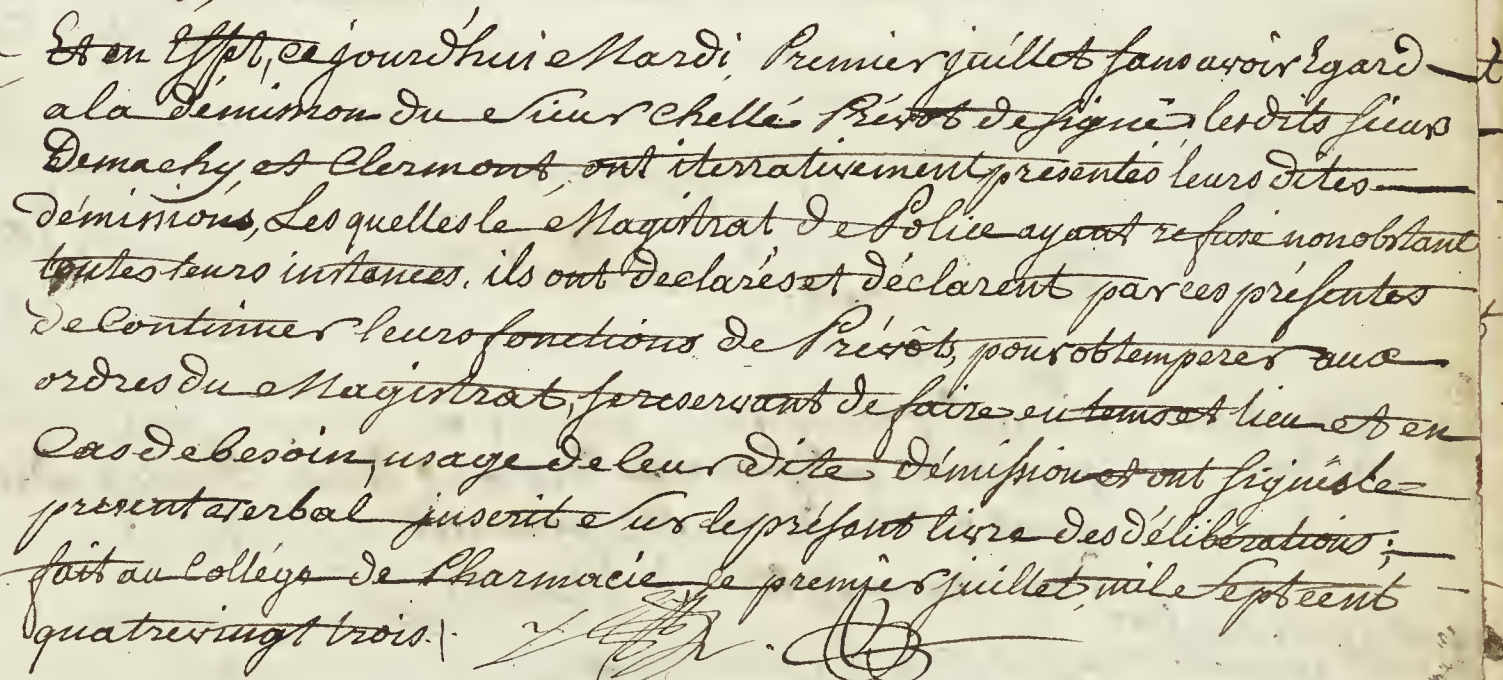 Et en Effet, ce jourd'hui Mardi Premier juillet sans avoir Egard
a la démission du Sieur Chellé Prévôt designé lesdits sieurs
Demachy et Clermont ont iterrativement présentés leurs dites
démissions, Lesquelles le Magistrat de Police ayant refusé nonobstant
toutes leurs instances. ils ont declarés et déclarent par ces présentes
de Continuer leurs fonctions de Prévôts, pour obtemperer aux
ordres du Magistrat, se reservant de faire en tems et lieu et en
Cas de besoin, usage de leur dite démission et ont signés le
present verbal inscrit Sur le présent livre des délibérations;
fait au Collége de Pharmacie le premier juillet, mil Sept cent
quatre vingt trois.